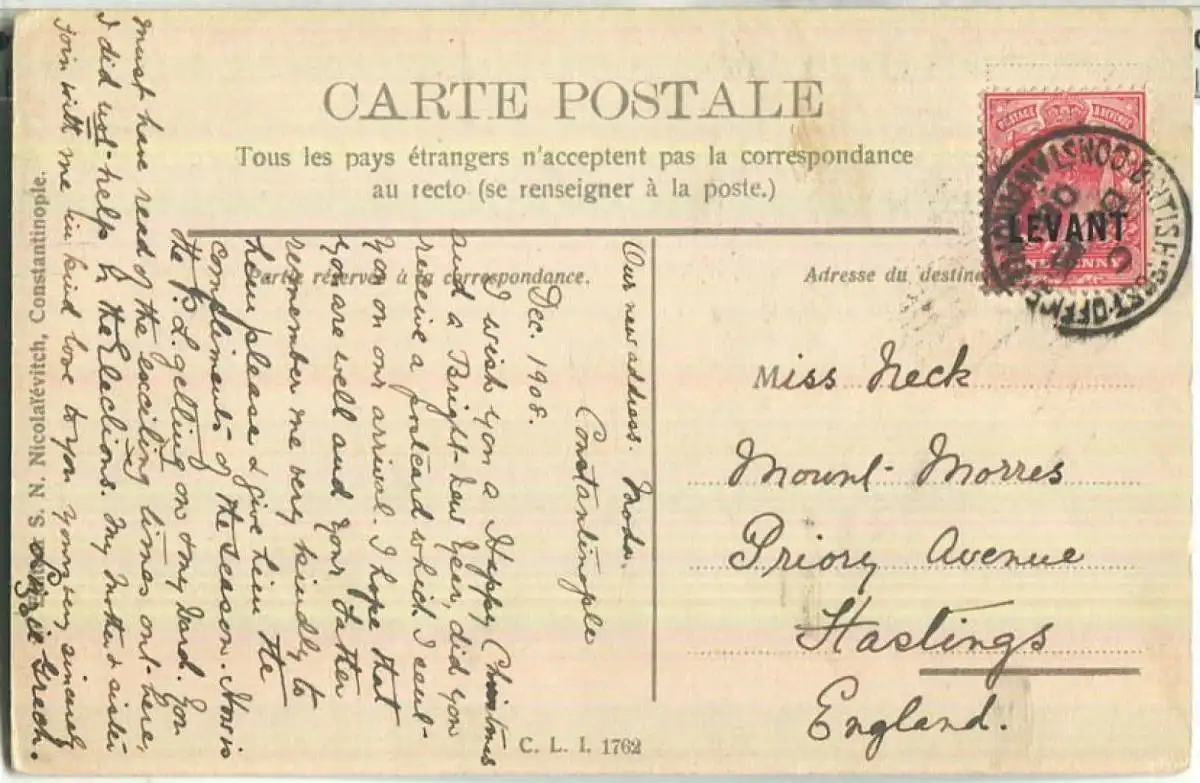 CARTE POSTALE
Tous les pays étrangers n'acceptent pas la correspondance
au recto (se renseigner à la poste.)
Partie réservée à la correspondance.
Adresse du destina
LEVANT
POSTAGE REVENUE
ONE PENNY
BRITISH POST OFFICE CONSTANTINOPLE
Miss Neck
Mount Morres
Priory Avenue
Hastings
England.
Our new address. Moda.
Constantinople
Dec. 1908.
I wish you a Happy Christmas
and a Bright New Year, did you
receive a postcard which I sent
you on our arrival. I hope that
you are well and your Father
remember me very kindly to
him please & give him the
compliments of the season. How is
the P.L. getting on my Ward. You
must have read of the exciting times out here,
I did not help in the Elections. My Mother & sister
join with me in kind love to you yours very sincerely
Grech.
S. N. Nicolaïévitch, Constantinople.
C. L. I. 1762